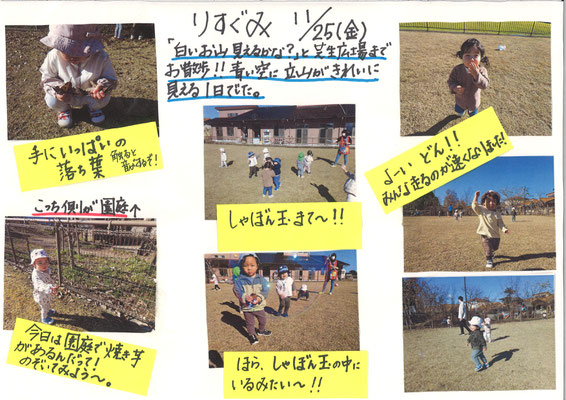 りすぐみ 11/25(金)
「白いお山見えるかな?」と芝生広場まで
お散歩!! 青い空に立山がきれいに
見える1日でした。
手にいっぱいの
落ち葉
こっち側が園庭↑
今日は園庭で焼き芋
があるんだって!
のぞいてみよう〜。
しゃぼん玉まて〜!!
ほら、しゃぼん玉の中に
いるみたい〜!!
よーいどん!!
みんな走るのが速くなりました!